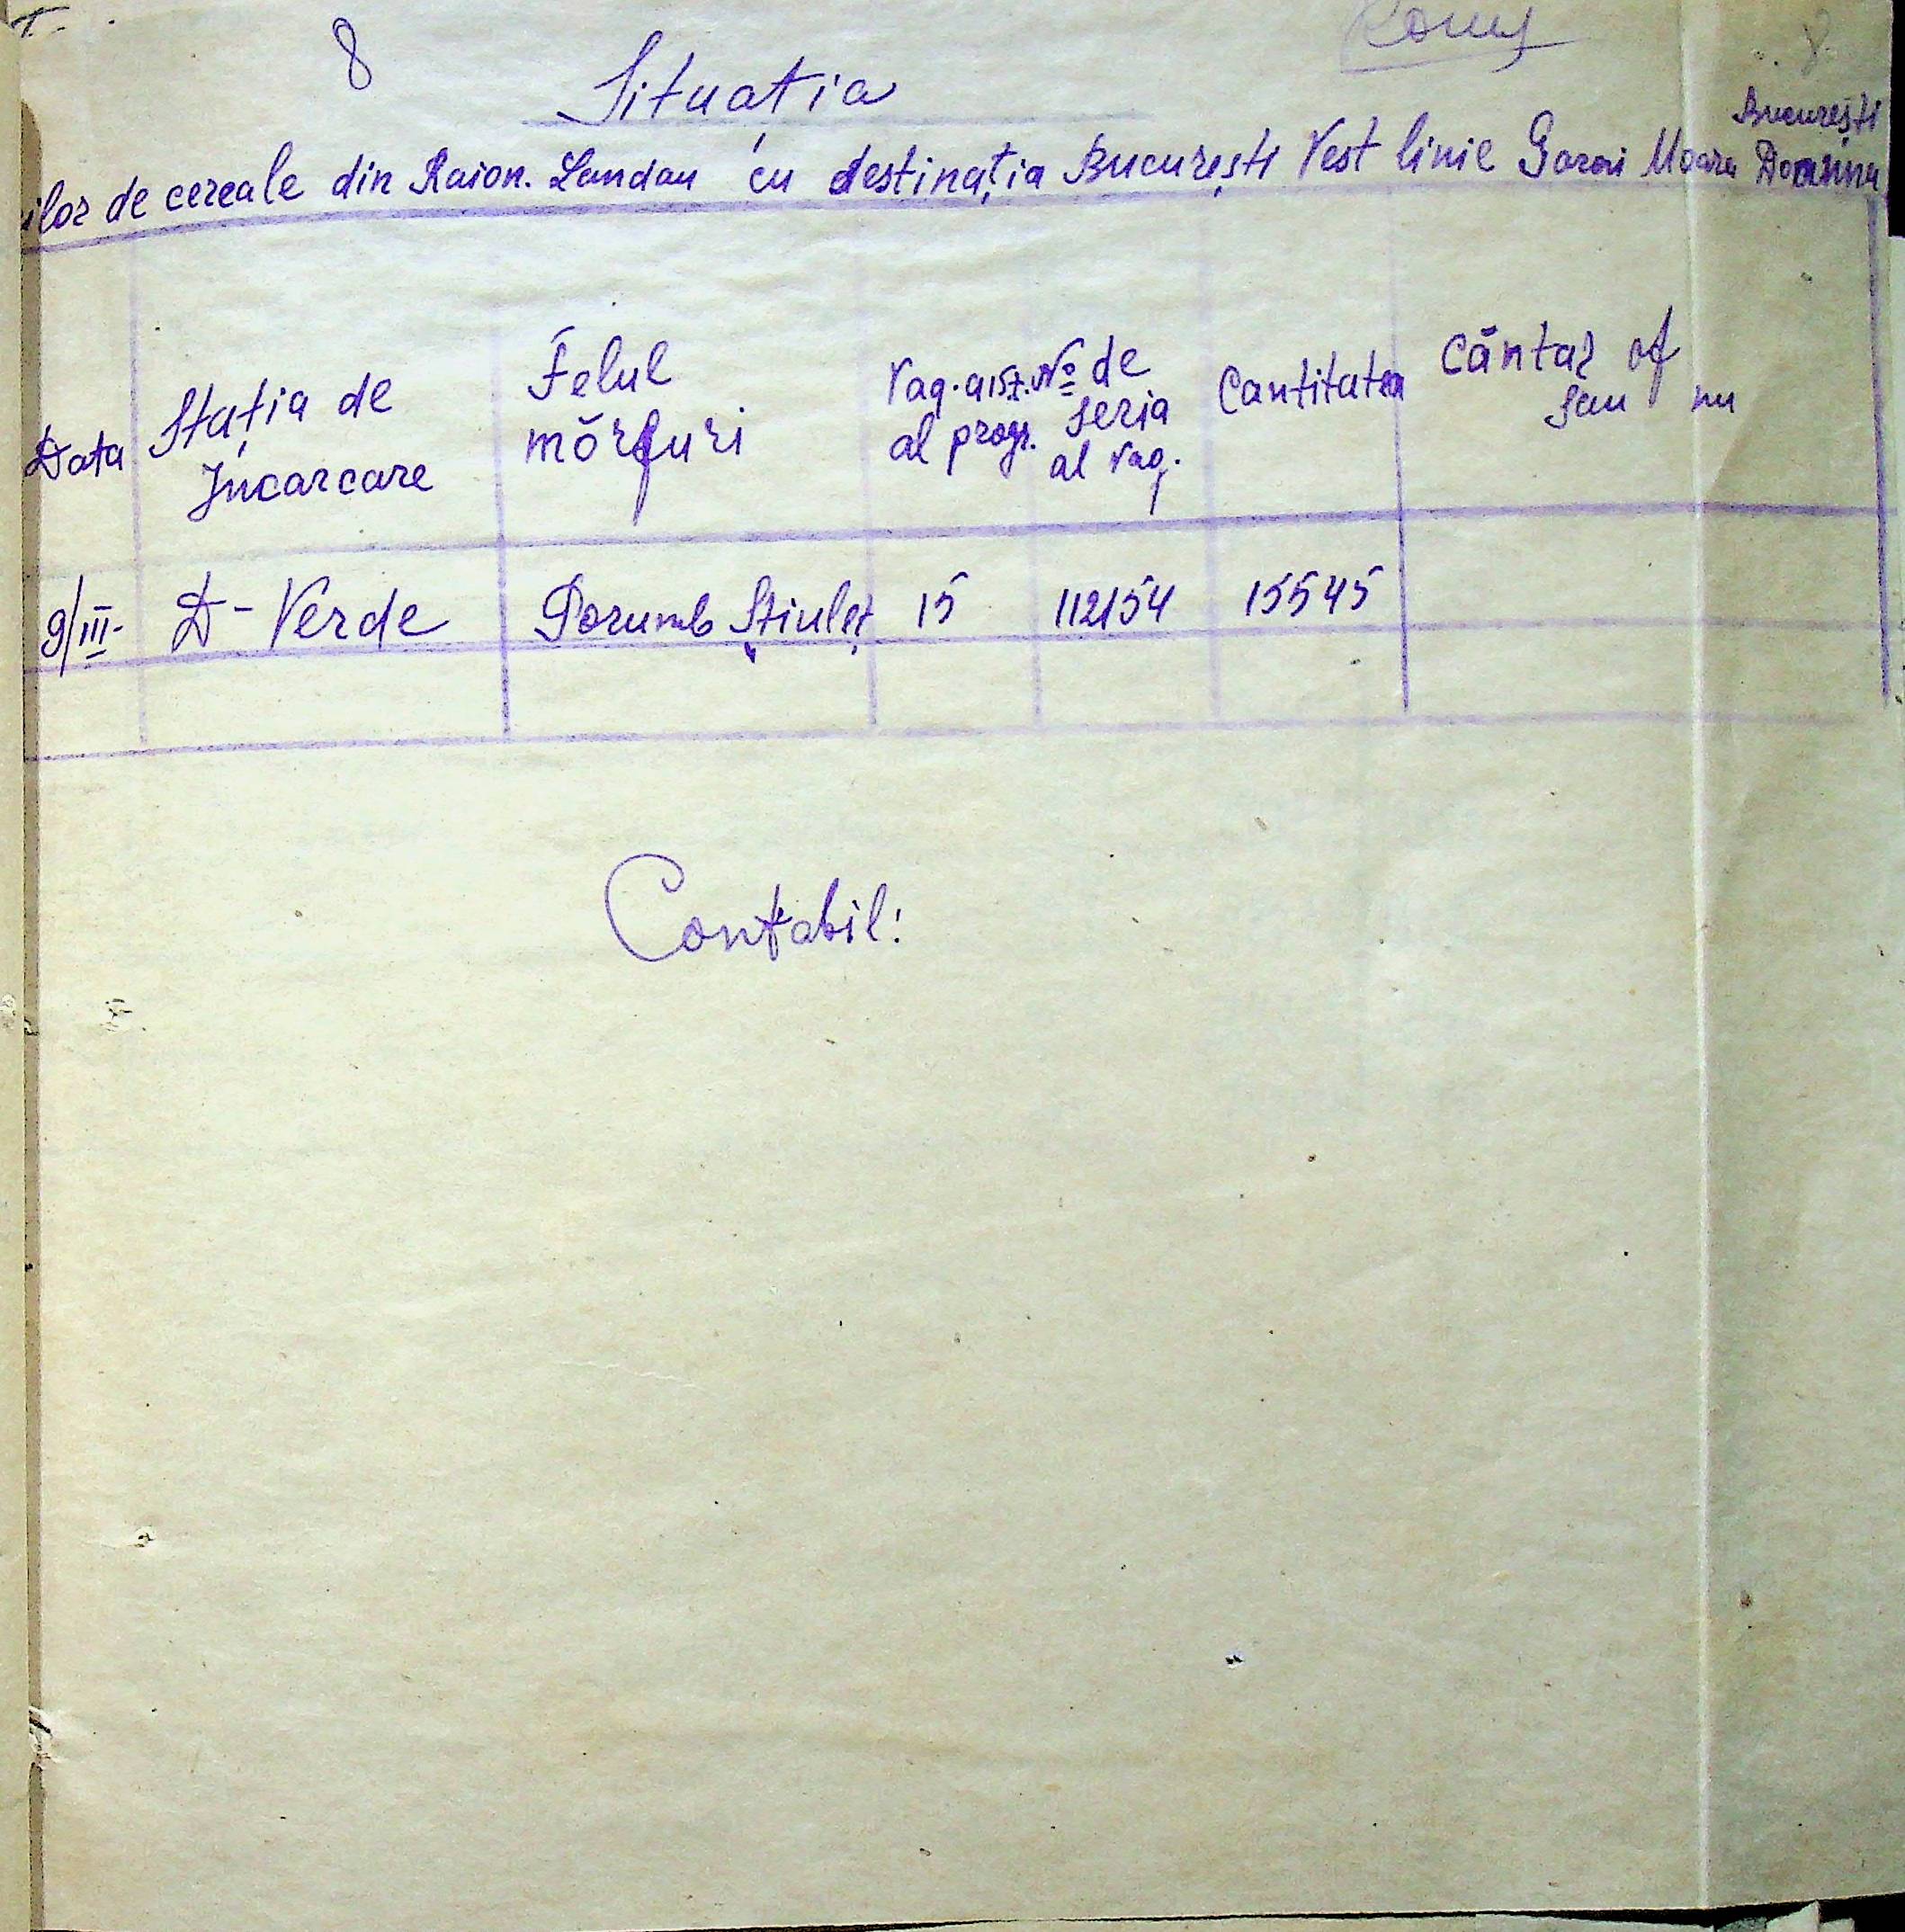 8
Situatia
București
ilor de cereale din Raion. Landau cu destinația București Vest linie Garari Moara
Data
Stația de Încarcare
Felul mărfuri
Vag. aist. al progr.
No de seria al vag.
Cantitatea
Cântar of sau nu
9/III- D-Verde Porumb Știuleț 15 112154 15545
Contabil: